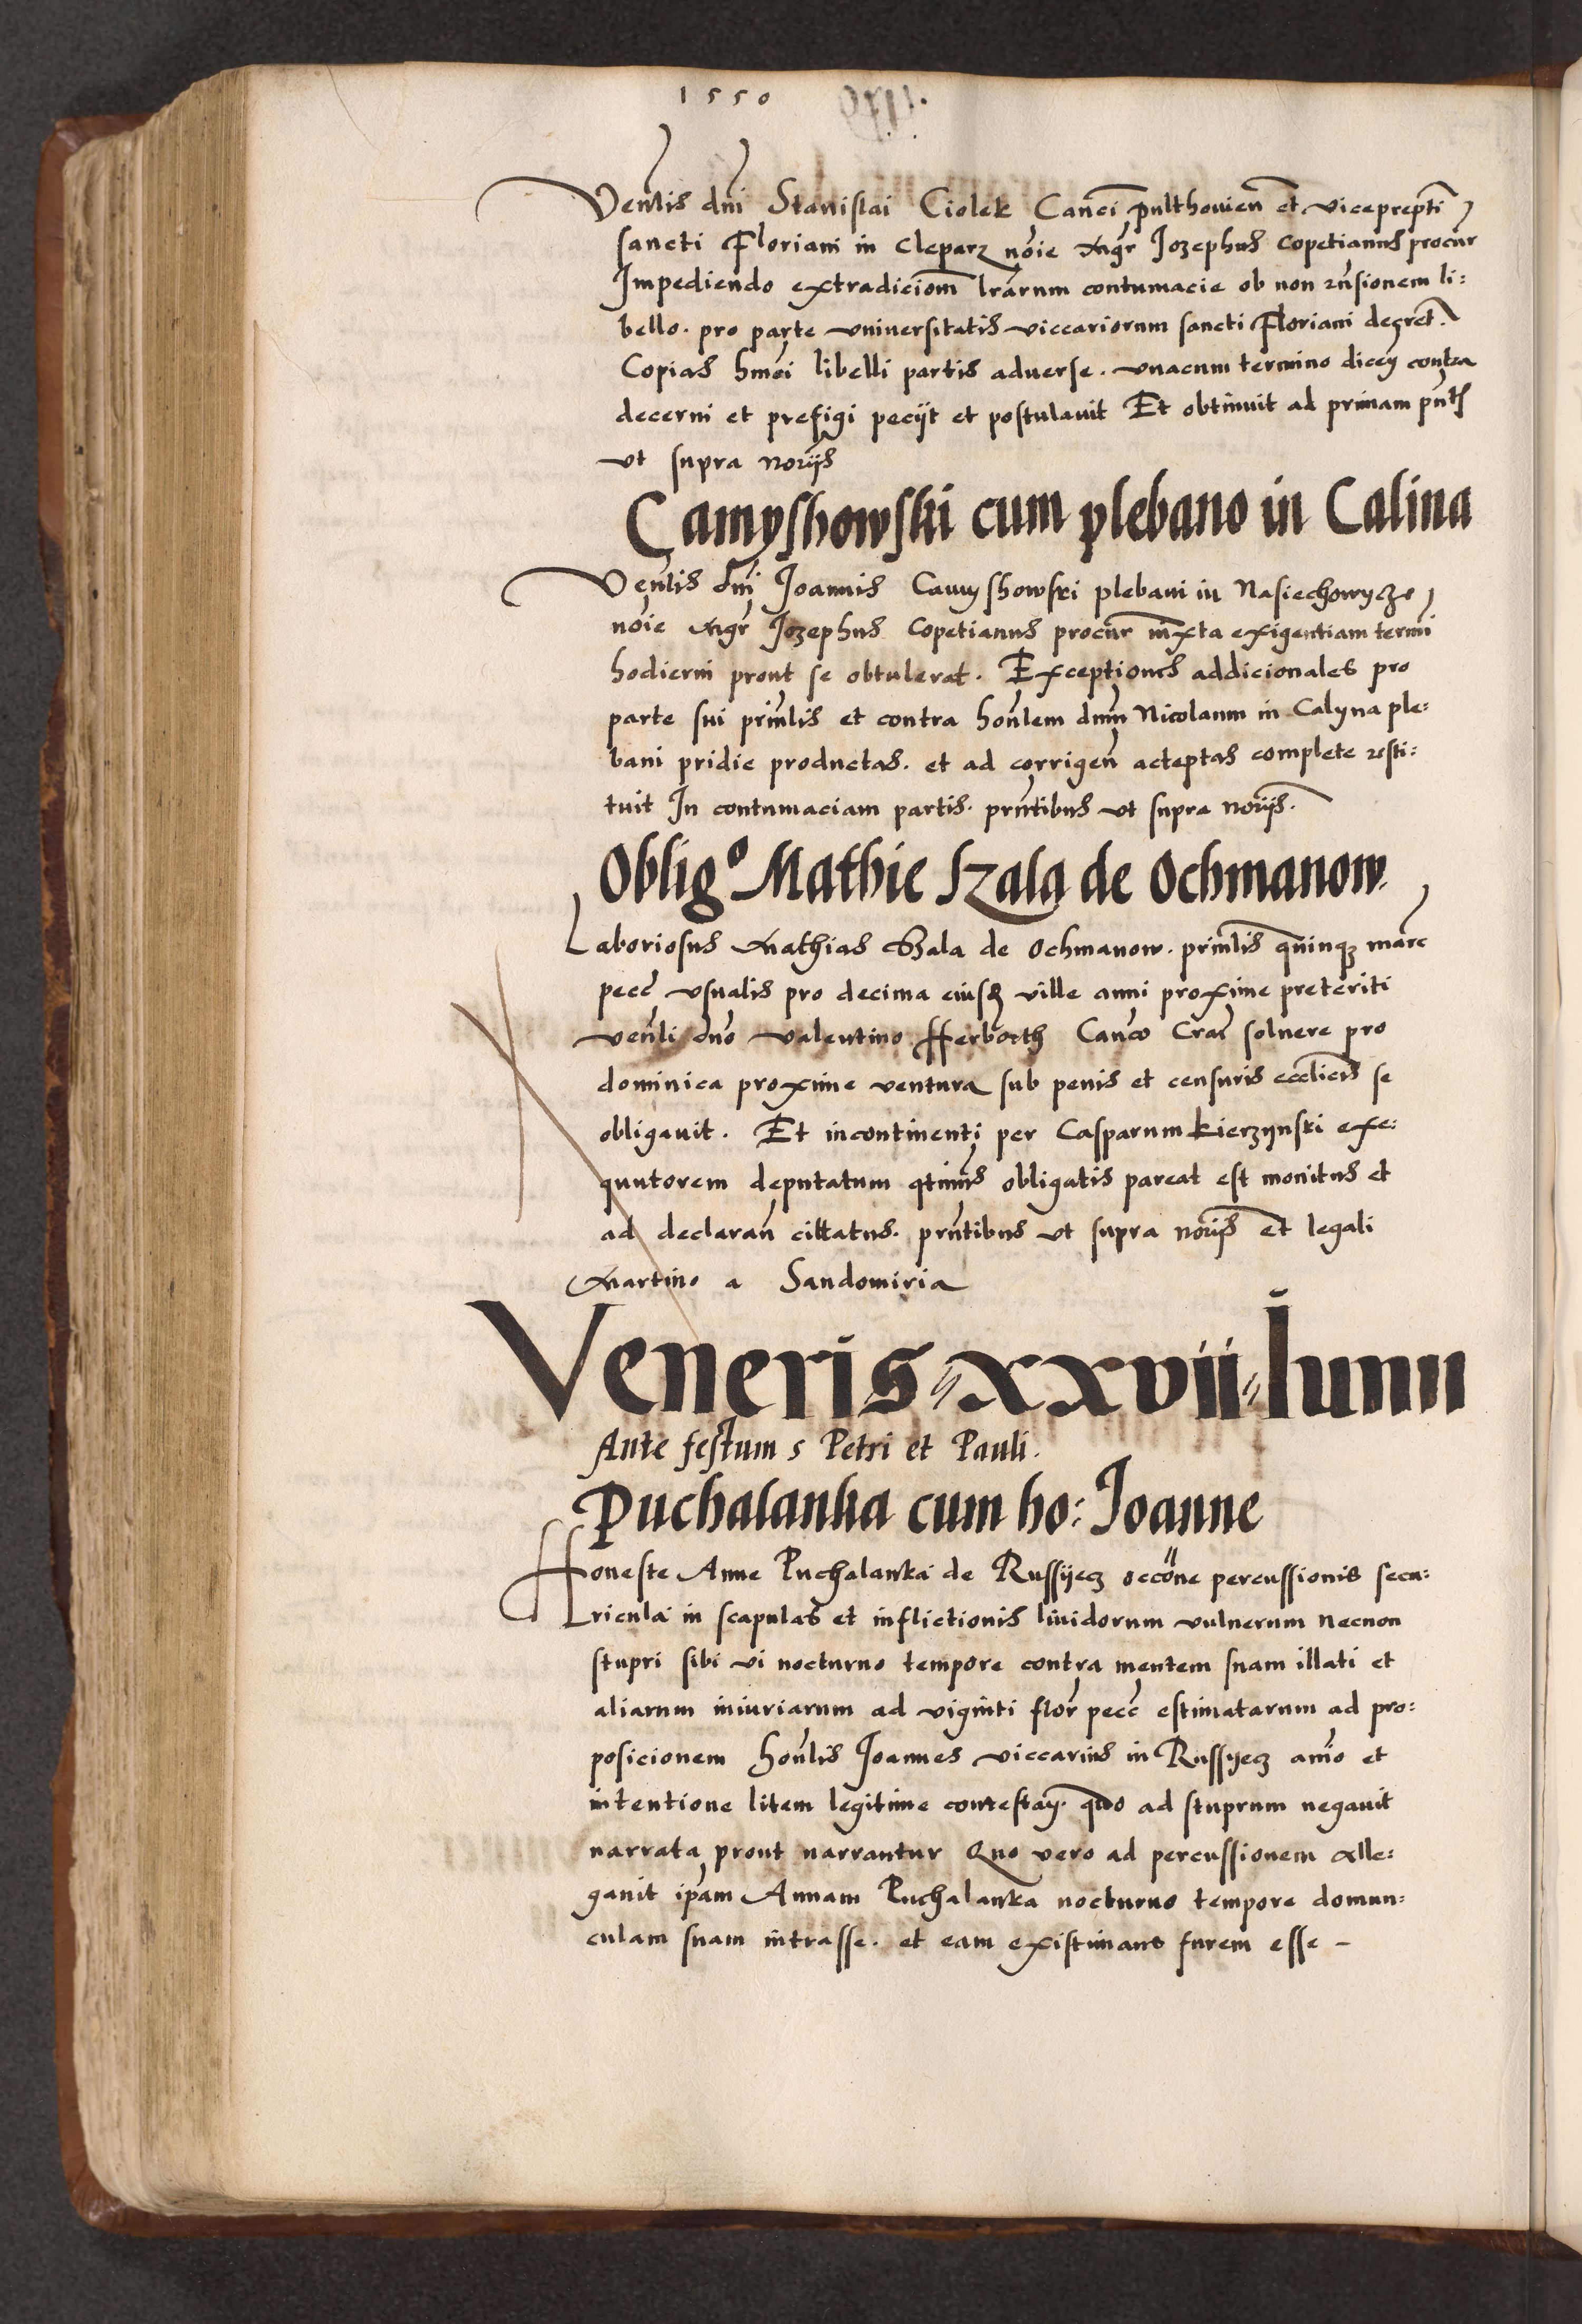 1550
Venlis dni Stanislai Ciolek Canci pulthovien et vicepreptI
sancti Floriani in Cleparz noie Mgr Jozephus Copetianus procur
Impediendo extradiciom lrarum contumacie ob non rnsionem li:
bello. pro parte universitatis viccariorum sancti Floriani decret.
Copias hmoi libelli partis adverse. unacum termino dicen contra
decerni et prefigi peciit et postulavit Et obtinuit ad primam pntbs
ut supra noriis
Camyshowski cum plebano in Calina
Venlis dni Joannis Camyshowski plebani in Nasiechowycze
noie Mgr Jozephus Copetianus procur iuxta exigentiam termi
hodierni prout se obtulerat. Exceptiones addicionales pro
parte sui prinlis et contra honlem dnm Nicolaum in Calyna ple:
bani pridie productas. et ad corrigen acceptas complete resti:
tuit In contumaciam partis. prntibus ut supra noriis.
Obligo Mathie Szala de Ochmanow.
Laboriosus Mathias Szala de Ochmanow. prinlis quinqz marc
pecc usualis pro decima eiusd ville anni proxime preteriti
venli dno Valentino Herborth Canco Crac solvere pro
dominica proxime ventura sub penis et censuris ecclicis se
obligavit. Et incontinenti per Casparum Kierzynski exe:
quutorem deputatum qtinus obligatis pareat est monitus et
ad declaran cittatus. prntibus ut supra noriis et legali
Martino a Sandomiria
Veneris xxvii Iunii
Ante festum s Petri et Pauli.
Puchalanka cum ho: Joanne
Honeste Anne Puchalanka de Russyecz occone percussionis secu:
ricula in scapulas et inflictionis lividorum vulnerum necnon
stupri sibi vi nocturno tempore contra mentem suam illati et
aliarum iniuriarum ad viginti flor pecc estimatarum ad pro:
posicionem honlis Joannes viccarius in Russyecz amo et
intentione litem legitime contestan. quo ad stuprum negavit
narrata prout narrantur Quo vero ad percussionem alle:
gavit ipam Annam Puchalanka nocturno tempore domun:
culam suam intrasse. et eam existimans furem esse -